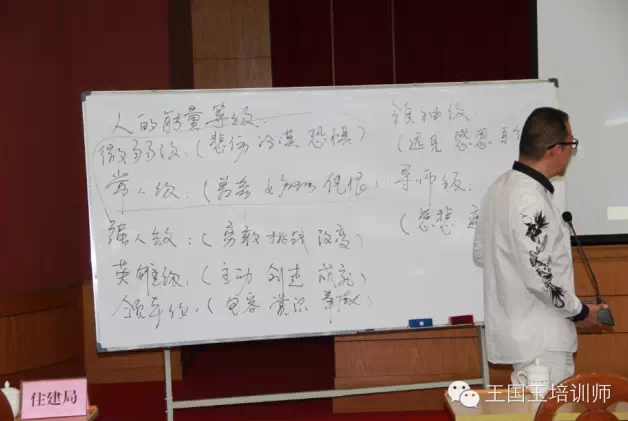 人的能量等级
微弱级：(悲伤 冷漠 恐惧)
常人级：(着急 嫉妒 憎恨
强人级：(勇敢 挑战 改变)
英雄级：(主动 创造 成就)
领导级：(包容 赏识 奉献)
领袖级
(远见 感恩
导师级：
(慈悲
住建局
王国工培训师